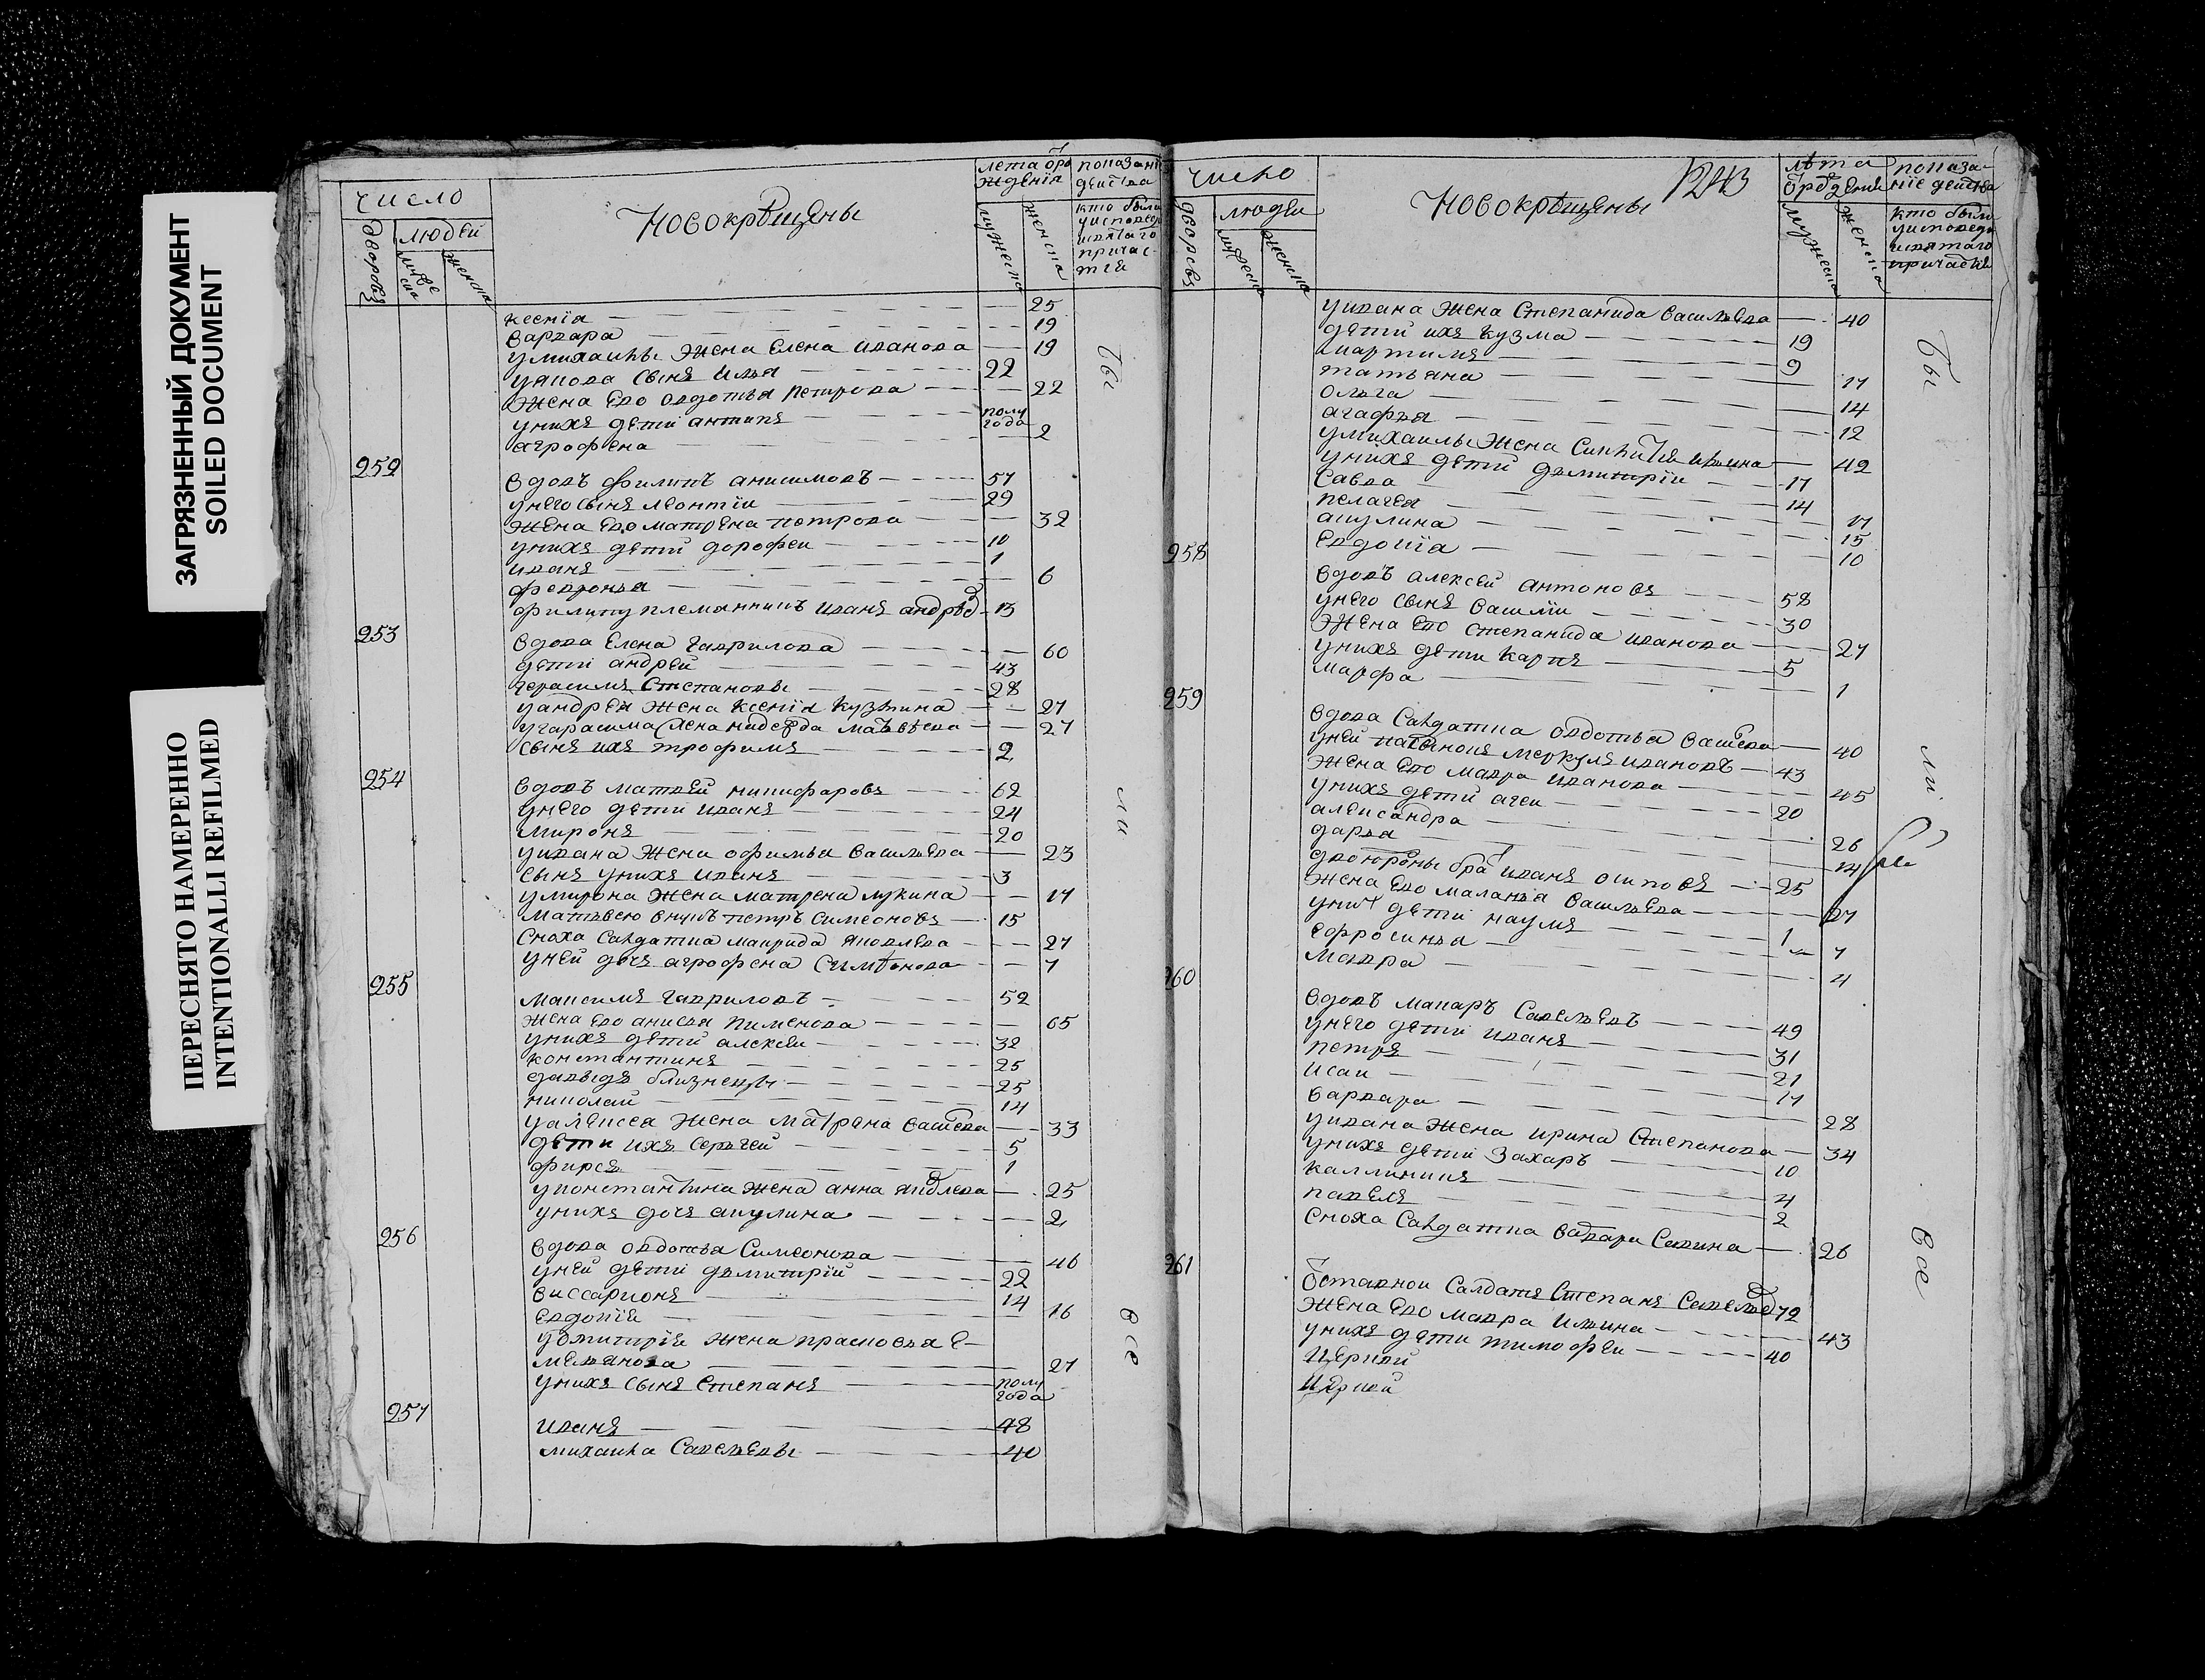 ЗАГРЯЗНЕННЫЙ ДОКУМЕНТ
SOILED DOCUMENT
ПЕРЕСНЯТО НАМЕРЕННО
INTENTIONALLI REFILMED
число
дворовъ
людей
мужеска
женска
Новокрѣщены
лета ѿ рождениѧ
мужеска
женска
показание действа
кто были у исповеди и свѧтаго причастиѧ
ксениѧ — 25
варвара — 19
у михаилы жена Елена иванова — 19
у ѧкова сынъ илья — 22
жена Ево овдотья петрова — 22
у нихъ дети антипъ — полугода
агрофена — 2
252
вдовъ филипъ анисимовъ — 57
у него сынъ леонтїи — 29
жена Ево матрена петрова — 32
у нихъ дети дорофеи — 10
иванъ — 1
февронья — 6
филипу племѧнникъ иванъ андрѣевъ — 13
253
вдова Елена гаврилова — 60
дети андрей — 43
герасимъ Степановы — 28
у андреѧ жена ксениѧ кузмина — 27
у гарасима жена матвѣева — 27
сынъ ихъ трофимъ — 2
254
вдовъ матвей никифаровъ — 62
у него дети иванъ — 24
миронъ — 20
у ивана жена офимья васильева — 23
сынъ у нихъ иванъ — 3
у мирона жена матрена лукина — 17
матвею внукъ петръ симеоновъ — 15
сноха салдатка маврида ѧковлева — 27
у ней дочь агрофена Симѣонова — 7
255
максимъ гавриловъ — 52
жена Ево анисья пименова — 65
у нихъ дети алексеи — 32
константинъ — 25
давыдъ близнецы — 25
николаи — 14
у алексеа жена матрена васильева — 33
дети ихъ сергеи — 5
фирсъ — 1
у константина жена анна ѧковлева — 25
у нихъ дочь акулина — 2
256
вдова овдотья Симеонова — 46
у ней дети димитрїи — 22
виссарионъ — 14
Евдокиѧ — 16
у димитриѧ жена прасковья е-
мельѧнова — 27
у нихъ сынъ степанъ — полугода
257
иванъ — 48
михаила савельевы — 40
бы
ли
все
число
дворовъ
людеи
мужеска
женска
Новокрѣщены
1243
лѣта ѿ рождениѧ
мужеска
женска
показание действа
кто были у исповеди и свѧтаго причастиѧ
у ивана жена степанида васильева — 40
дети ихъ кузма — 19
мартинъ — 9
татьѧна — 17
ольга — 14
агафья — 12
у михаилы жена ильина — 42
у нихъ дети димитрїи — 17
савва — 14
пелагеѧ — 17
акулина — 15
Евдокїа — 10
258
вдовъ алексей антоновъ — 58
у него сынъ василїи — 30
жена Ево степанида иванова — 27
у нихъ дети карпъ — 5
марфа — 1
259
вдова салдатка овдотья васильева — 40
у ней меркулъ ивановъ — 43
жена Ево мавра иванова — 45
у нихъ дети агеи — 20
александра — 26
дарья — 14
двоюроны братъ иванъ осиповъ — 25
жена Ево маланья васильева — 27
у нихъ дети наумъ — 1
ефросинья — 7
мавра — 4
260
вдовъ макаръ савельевъ — 49
у него дети иванъ — 31
петръ — 21
исаи — 17
варвара — 28
у ивана жена ирина степанова — 34
у нихъ дети захаръ — 10
каллиникъ — 4
павелъ — 2
сноха салдатка варвара савина — 26
261
ѿставнои салдатъ степанъ савельевъ — 72
жена Ево мавра ильина — 43
у нихъ дети тимофеи — 40
бы
ли
все